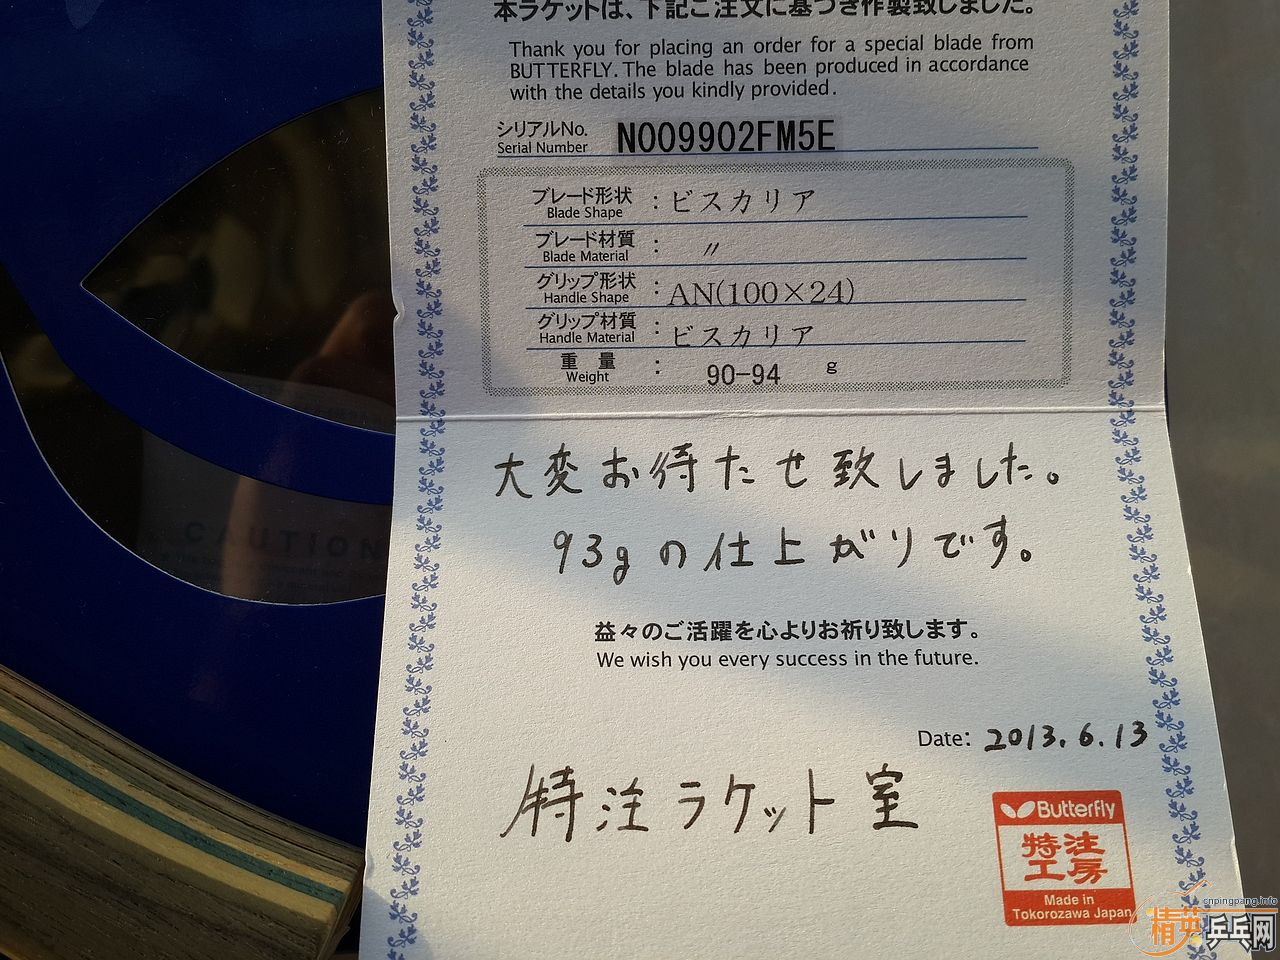 本ラケットは、下記ご注文に基づき作製致しました。
Thank you for placing an order for a special blade from
BUTTERFLY. The blade has been produced in accordance
with the details you kindly provided.
シリアルNo.
Serial Number
N009902FM5E
ブレード形状
Blade Shape
: ビスカリア
ブレード材質
Blade Material
: 〃
グリップ形状
Handle Shape
: AN(100×24)
グリップ材質
Handle Material
: ビスカリア
重量
Weight
: 90-94 g
大変お待たせ致しました。
93gの仕上がりです。
益々のご活躍を心よりお祈り致します。
We wish you every success in the future.
Date: 2013.6.13
特注ラケット室
Butterfly
特注
工房
Made in
Tokorozawa Japan
CAUTION
cnpingpang.info
精英乒乓网